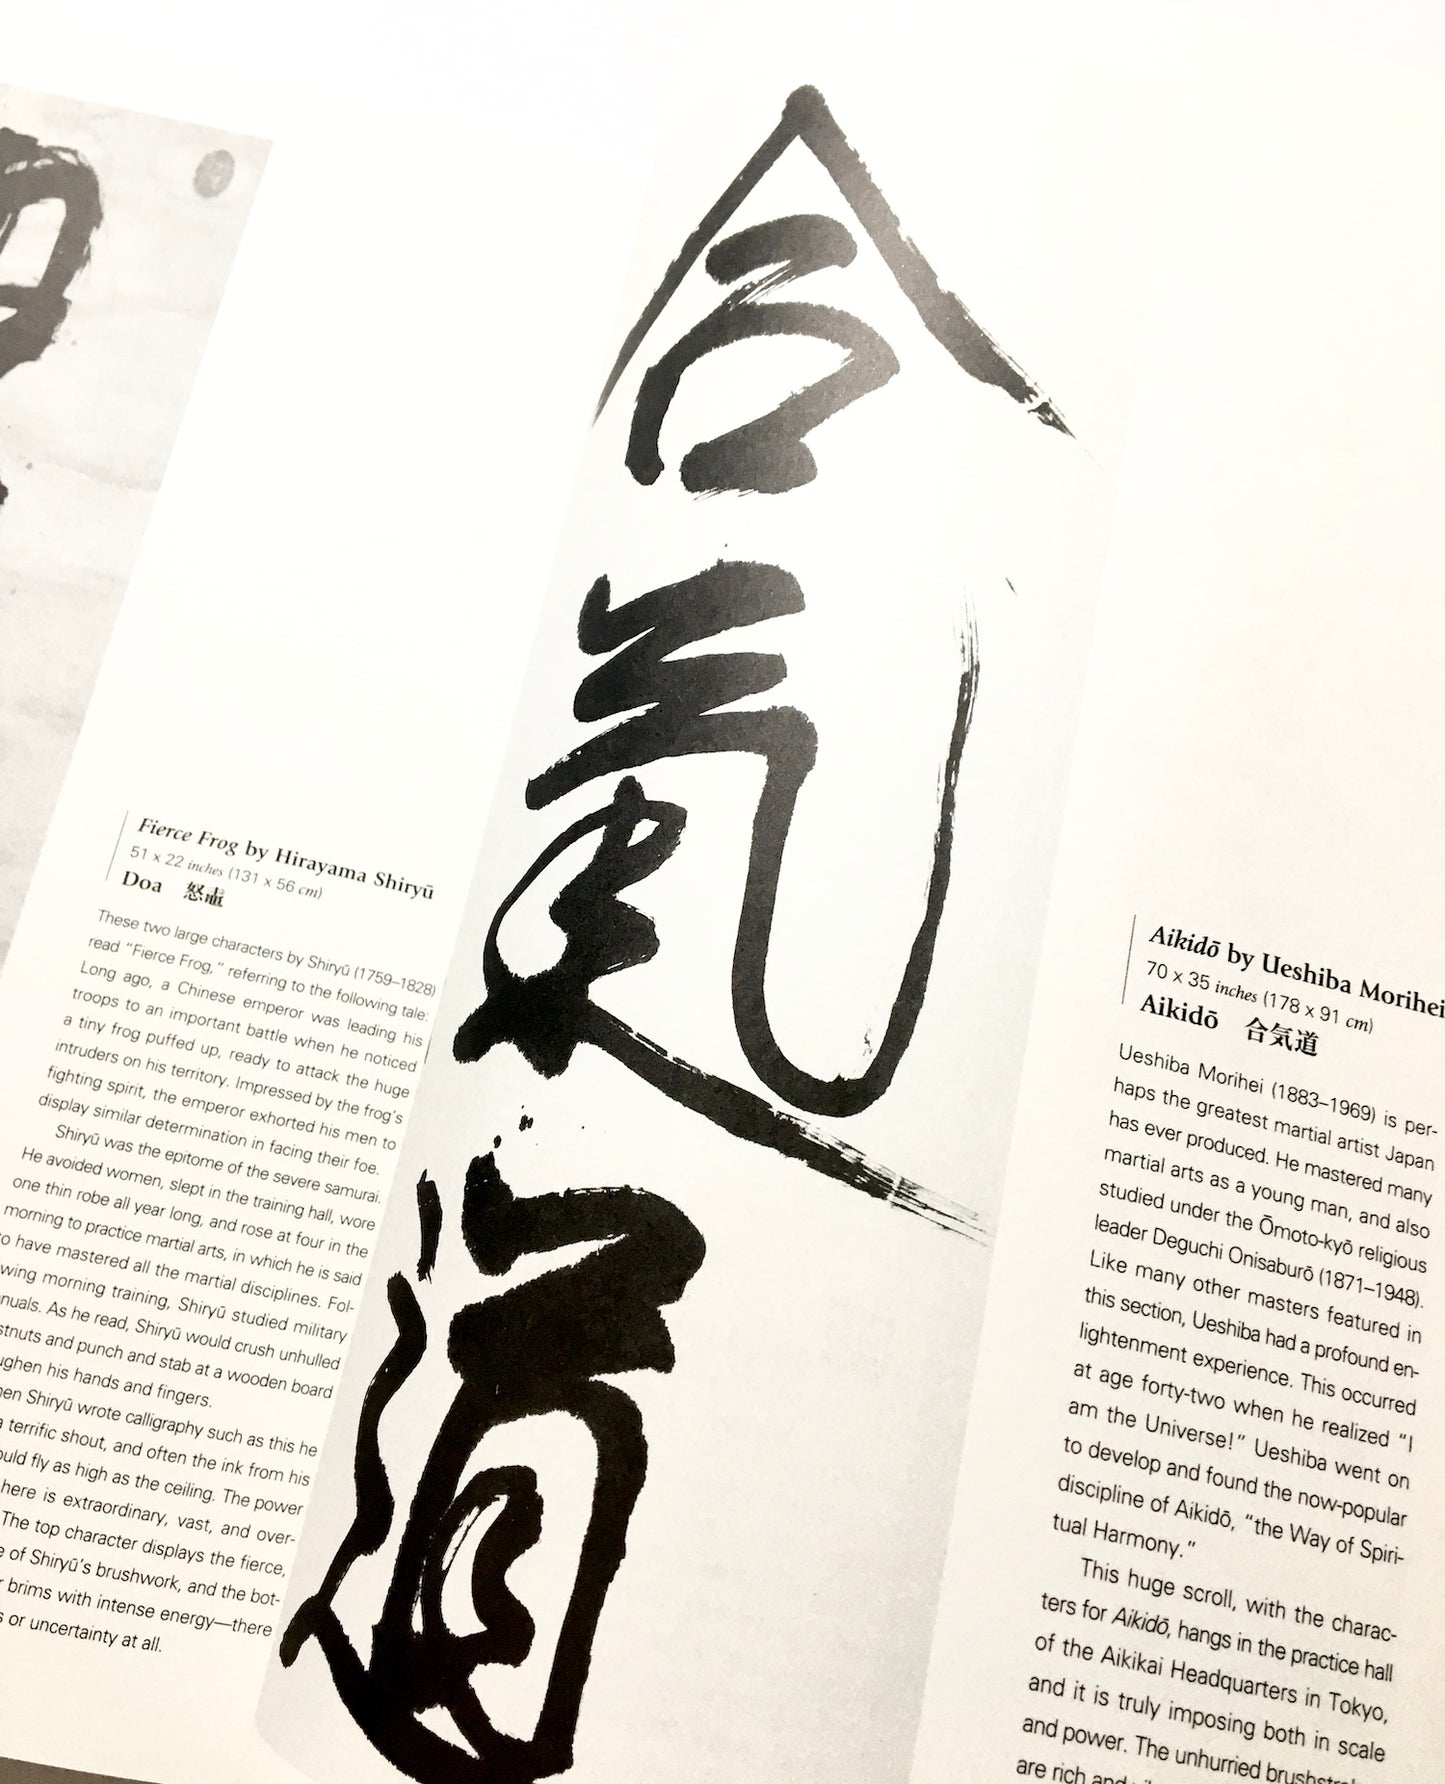 Fierce Frog by Hirayama Shiryū
51 x 22 inches (131 x 56 cm)
Doa 怒蛙
These two large characters by Shiryū (1759–1828)
read "Fierce Frog," referring to the following tale:
Long ago, a Chinese emperor was leading his
troops to an important battle when he noticed
a tiny frog puffed up, ready to attack the huge
intruders on his territory. Impressed by the frog's
fighting spirit, the emperor exhorted his men to
display similar determination in facing their foe.
Shiryū was the epitome of the severe samurai.
He avoided women, slept in the training hall, wore
one thin robe all year long, and rose at four in the
morning to practice martial arts, in which he is said
to have mastered all the martial disciplines. Fol-
wing morning training, Shiryū studied military
nuals. As he read, Shiryū would crush unhulled
stnuts and punch and stab at a wooden board
ughen his hands and fingers.
en Shiryū wrote calligraphy such as this he
a terrific shout, and often the ink from his
ould fly as high as the ceiling. The power
here is extraordinary, vast, and over-
The top character displays the fierce,
e of Shiryū's brushwork, and the bot-
r brims with intense energy—there
s or uncertainty at all.
合
氣
道
Aikidō by Ueshiba Morihei
70 x 35 inches (178 x 91 cm)
Aikidō 合気道
Ueshiba Morihei (1883–1969) is per-
haps the greatest martial artist Japan
has ever produced. He mastered many
martial arts as a young man, and also
studied under the Ōmoto-kyō religious
leader Deguchi Onisaburō (1871–1948).
Like many other masters featured in
this section, Ueshiba had a profound en-
lightenment experience. This occurred
at age forty-two when he realized "I
am the Universe!" Ueshiba went on
to develop and found the now-popular
discipline of Aikidō, "the Way of Spiri-
tual Harmony."
This huge scroll, with the charac-
ters for Aikidō, hangs in the practice hall
of the Aikikai Headquarters in Tokyo,
and it is truly imposing both in scale
and power. The unhurried brushstr
are rich and